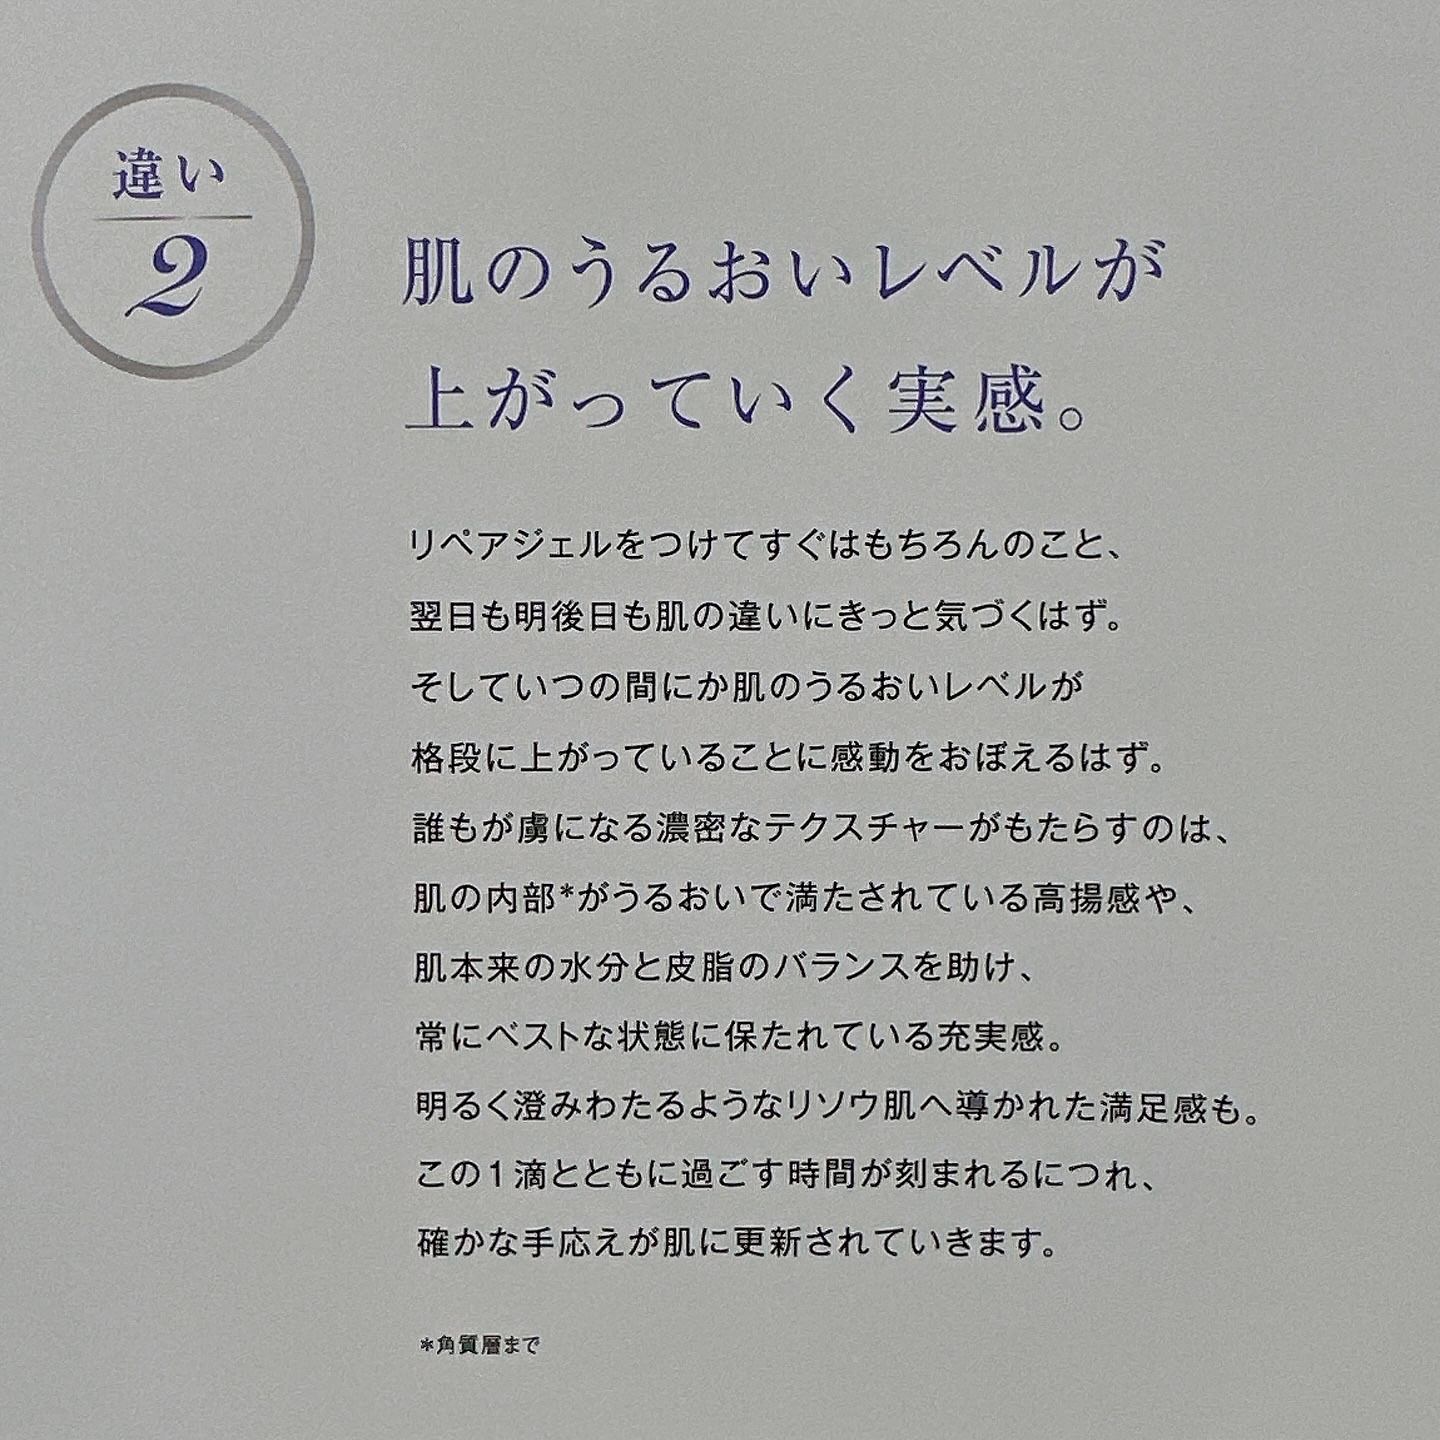 違い
2
肌のうるおいレベルが
上がっていく実感。
リペアジェルをつけてすぐはもちろんのこと、
翌日も明後日も肌の違いにきっと気づくはず。
そしていつの間にか肌のうるおいレベルが
格段に上がっていることに感動をおぼえるはず。
誰もが虜になる濃密なテクスチャーがもたらすのは、
肌の内部*がうるおいで満たされている高揚感や、
肌本来の水分と皮脂のバランスを助け、
常にベストな状態に保たれている充実感。
明るく澄みわたるようなリソウ肌へ導かれた満足感も。
この1滴とともに過ごす時間が刻まれるにつれ、
確かな手応えが肌に更新されていきます。
*角質層まで